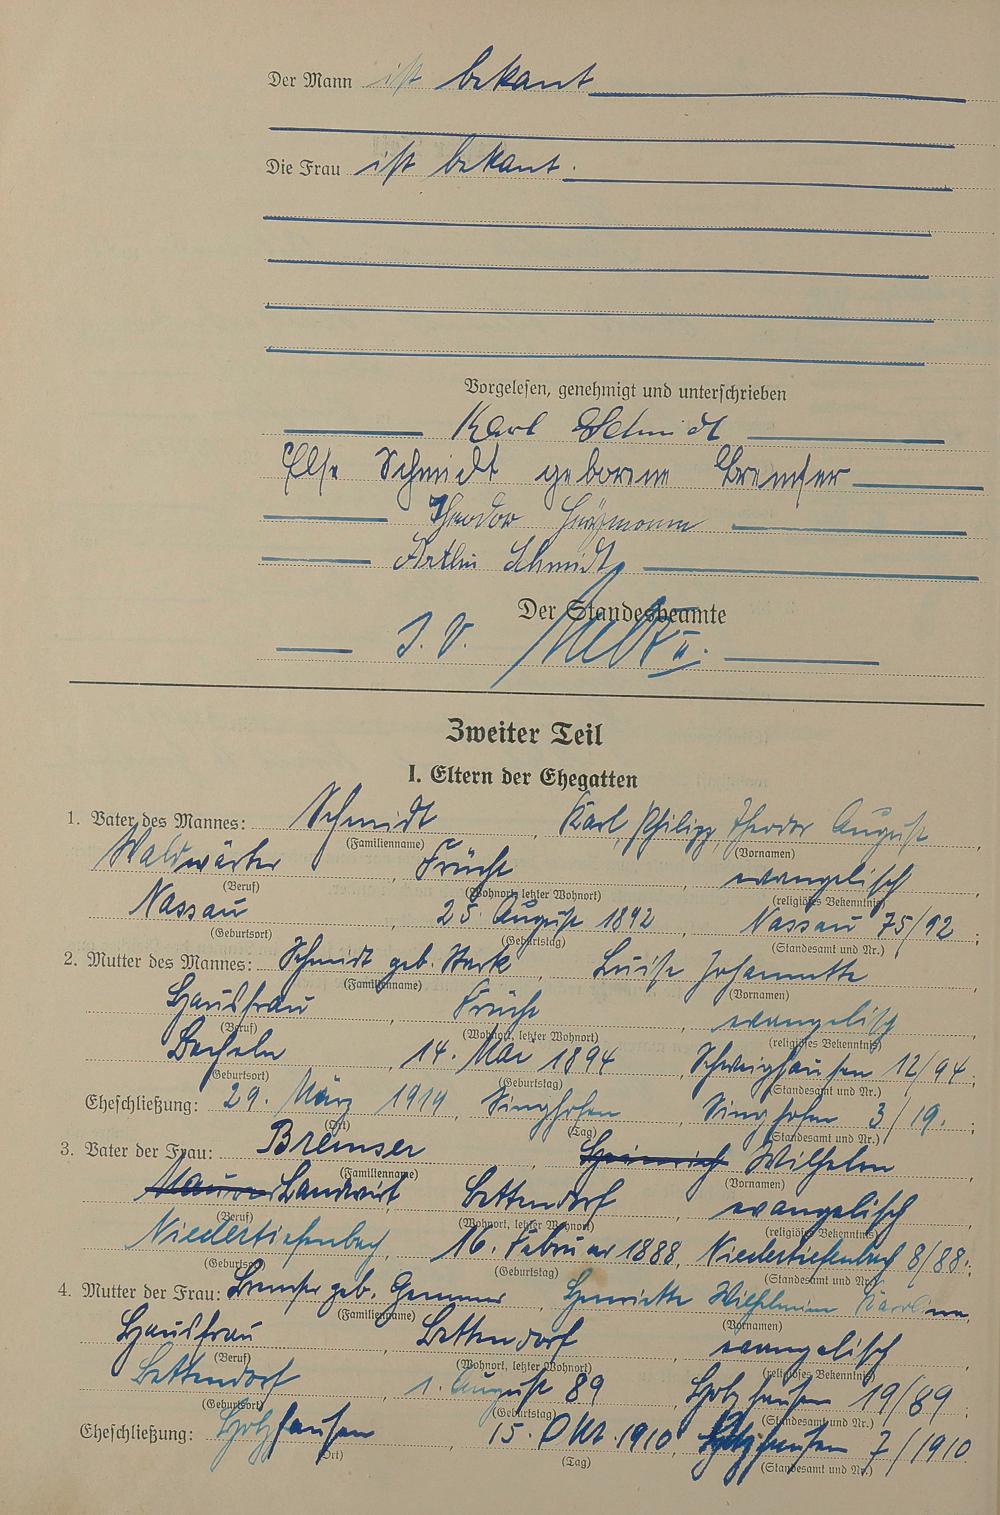 Der Mann ist bekant
Die Frau ist bekant.
Vorgelesen, genehmigt und unterschrieben
Karl Schmidt
Else Schmidt geborene Bremser
Theodor
Arthur Schmidt
Der Standesbeamte
I. V.
Zweiter Teil
I. Eltern der Ehegatten
1. Vater des Mannes: Schmidt, Karl, Philipp, Theodor August,
(Familienname) (Vornamen)
Waldwärter, Frücht, evangelisch
(Beruf) (Wohnort, letzter Wohnort) (religiöses Bekenntnis)
Nassau, 25. August 1892, Nassau 75/92;
(Geburtsort) (Geburtstag) (Standesamt und Nr.)
2. Mutter des Mannes: Schmidt geb. Stark, Luise Johannette,
(Familienname) (Vornamen)
Hausfrau, Frücht, evangelisch,
(Beruf) (Wohnort, letzter Wohnort) (religiöses Bekenntnis)
Becheln, 14. Mai 1894, Schweighausen 12/94;
(Geburtsort) (Geburtstag) (Standesamt und Nr.)
Eheschließung: 29. März 1919, Singhofen, Singhofen 3/19.;
(Ort) (Tag) (Standesamt und Nr.)
3. Vater der Frau: Bremser, Heinrich Wilhelm,
(Familienname) (Vornamen)
Maurer Landwirt, Bettendorf, evangelisch,
(Beruf) (Wohnort, letzter Wohnort) (religiöses Bekenntnis)
Niedertiefenbach, 16. Februar 1888, Niedertiefenbach 8/88.;
(Geburtsort) (Geburtstag) (Standesamt und Nr.)
4. Mutter der Frau: Bremser geb. Gemmer, Henriette Wilhelmine Karoline,
(Familienname) (Vornamen)
Hausfrau, Bettendorf, evangelisch,
(Beruf) (Wohnort, letzter Wohnort) (religiöses Bekenntnis)
Bettendorf, 1. August 89, Holzhausen 19/89;
(Geburtsort) (Geburtstag) (Standesamt und Nr.)
Eheschließung: Holzhausen, 15. Okt. 1910, Holzhausen 7/1910
(Ort) (Tag) (Standesamt und Nr.)